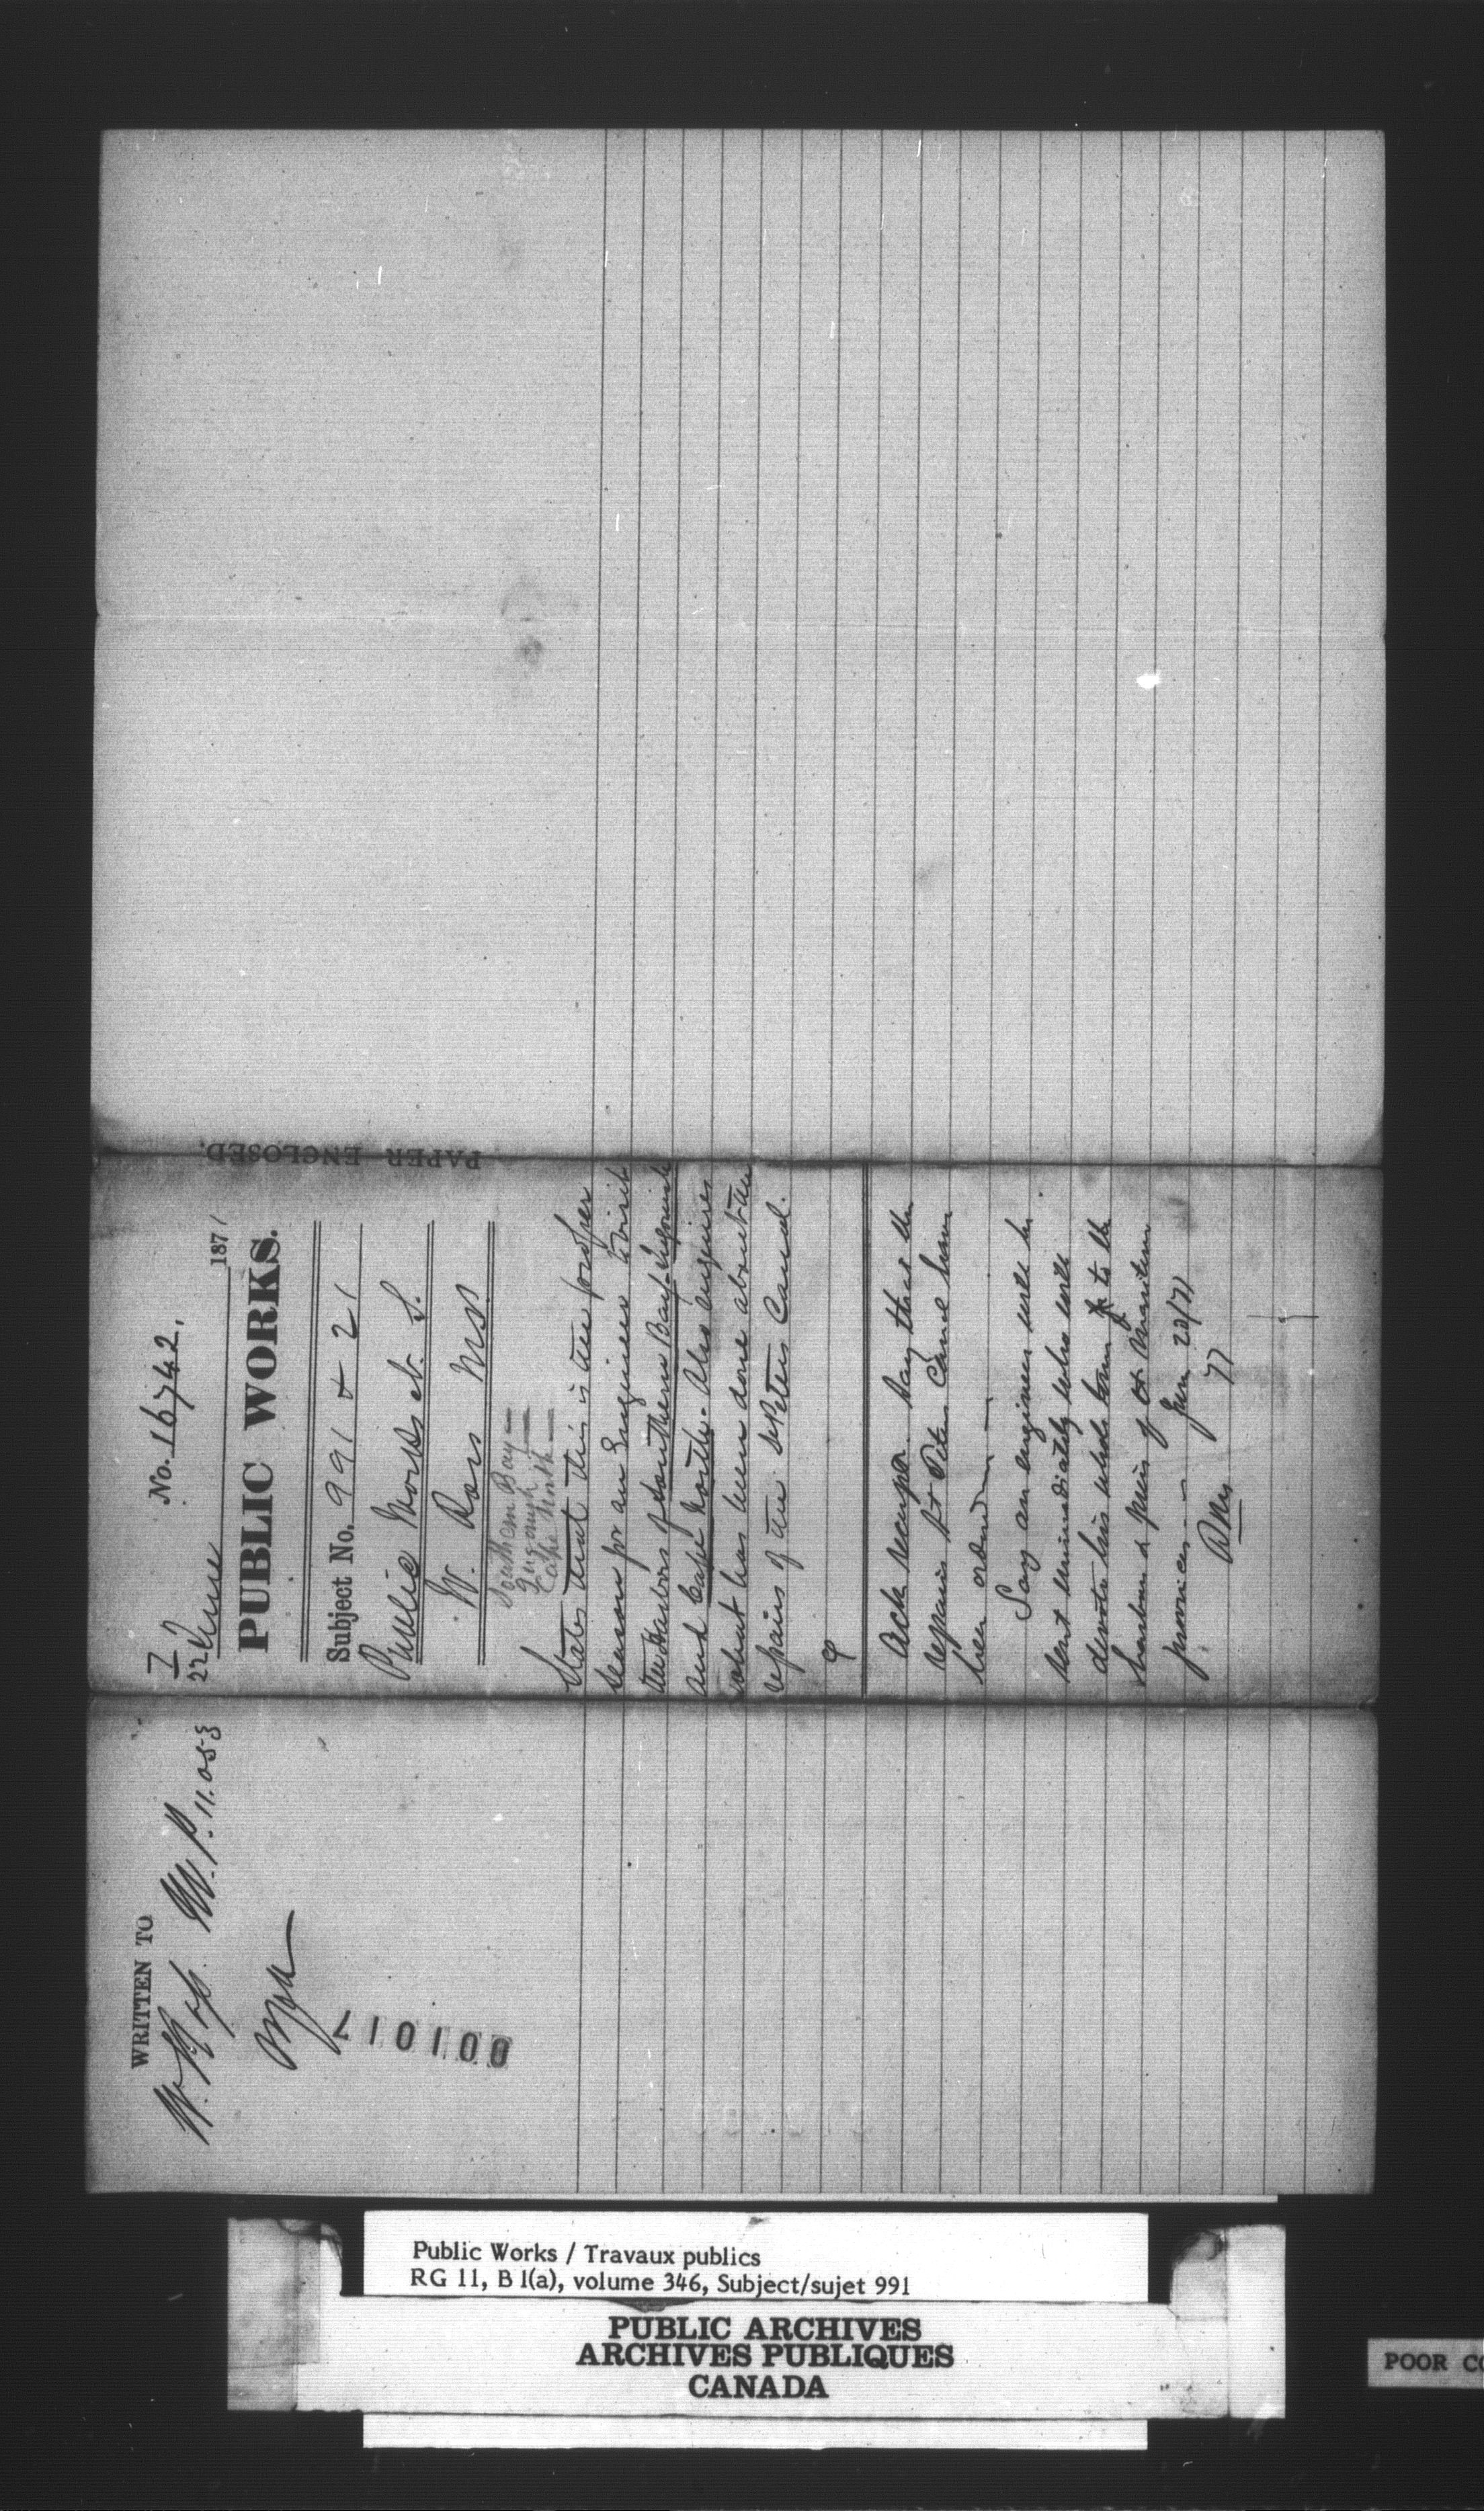 No. 16742.
7
22 June 1871
PUBLIC WORKS.
Subject No. 991 & 21
Public Works etc. S.
W. Ross M.P.
Southern Bay
Ingonish
Cape North
States that this is the proper
season for an Engineer to visit
the Harbors of Southern Bay Ingonish
and Cape North. Also enquires
what has been done about the
repairs of the St Peters Canal.
Ack receipt. Say that the
repairs St Peters Canal have
been ordered
Say an engineer will be
sent immediately who will
devote his whole time to the
harbours & piers of Maritime
provinces
June 23/71
PAPER ENCLOSED.
WRITTEN TO
W. Ross M.P. 11.053
001017
Public Works / Travaux publics
RG 11, B 1(a), volume 346, Subject/sujet 991
PUBLIC ARCHIVES
ARCHIVES PUBLIQUES
CANADA
POOR CO